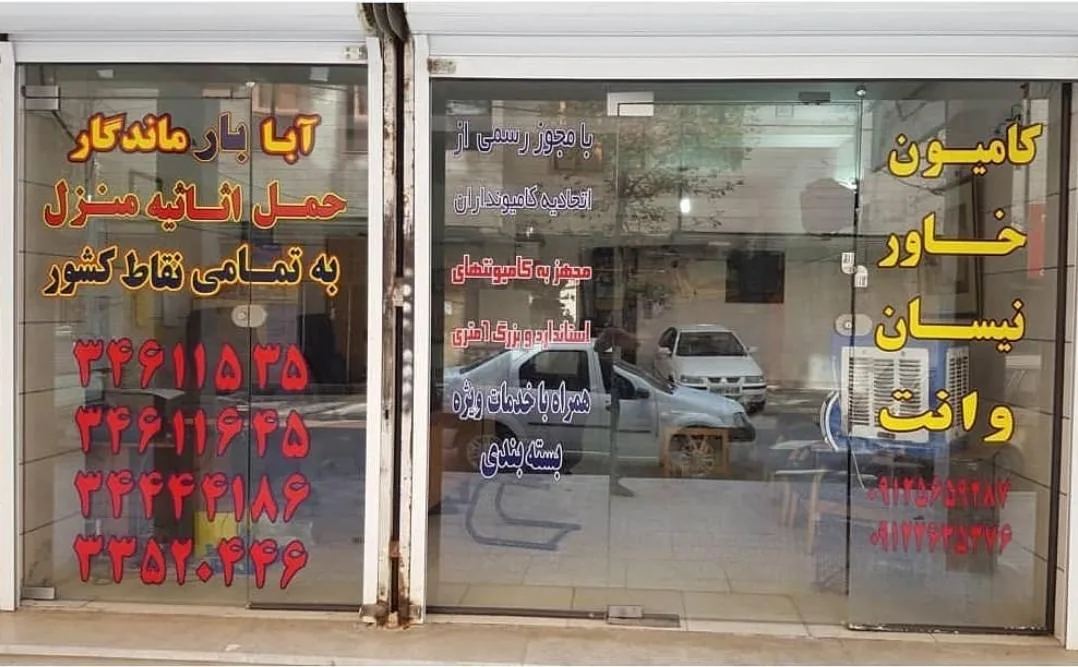 کامیون
خاور
نیسان
وانت
۰۹۱۲۵۶۵۹۲۸۷
۰۹۱۲۲۶۳۵۳۷۶
با مجوز رسمی از
اتحادیه کامیونداران
مجهز به کامیونتهای
استاندارد و بزرگ ۶متری
همراه با خدمات ویژه
بسته بندی
آبا بار ماندگار
حمل اثاثیه منزل
به تمامی نقاط کشور
۳۴۶۱۱۵۳۵
۳۴۶۱۱۶۴۵
۳۴۴۴۴۱۸۶
۳۳۵۲۰۴۴۶